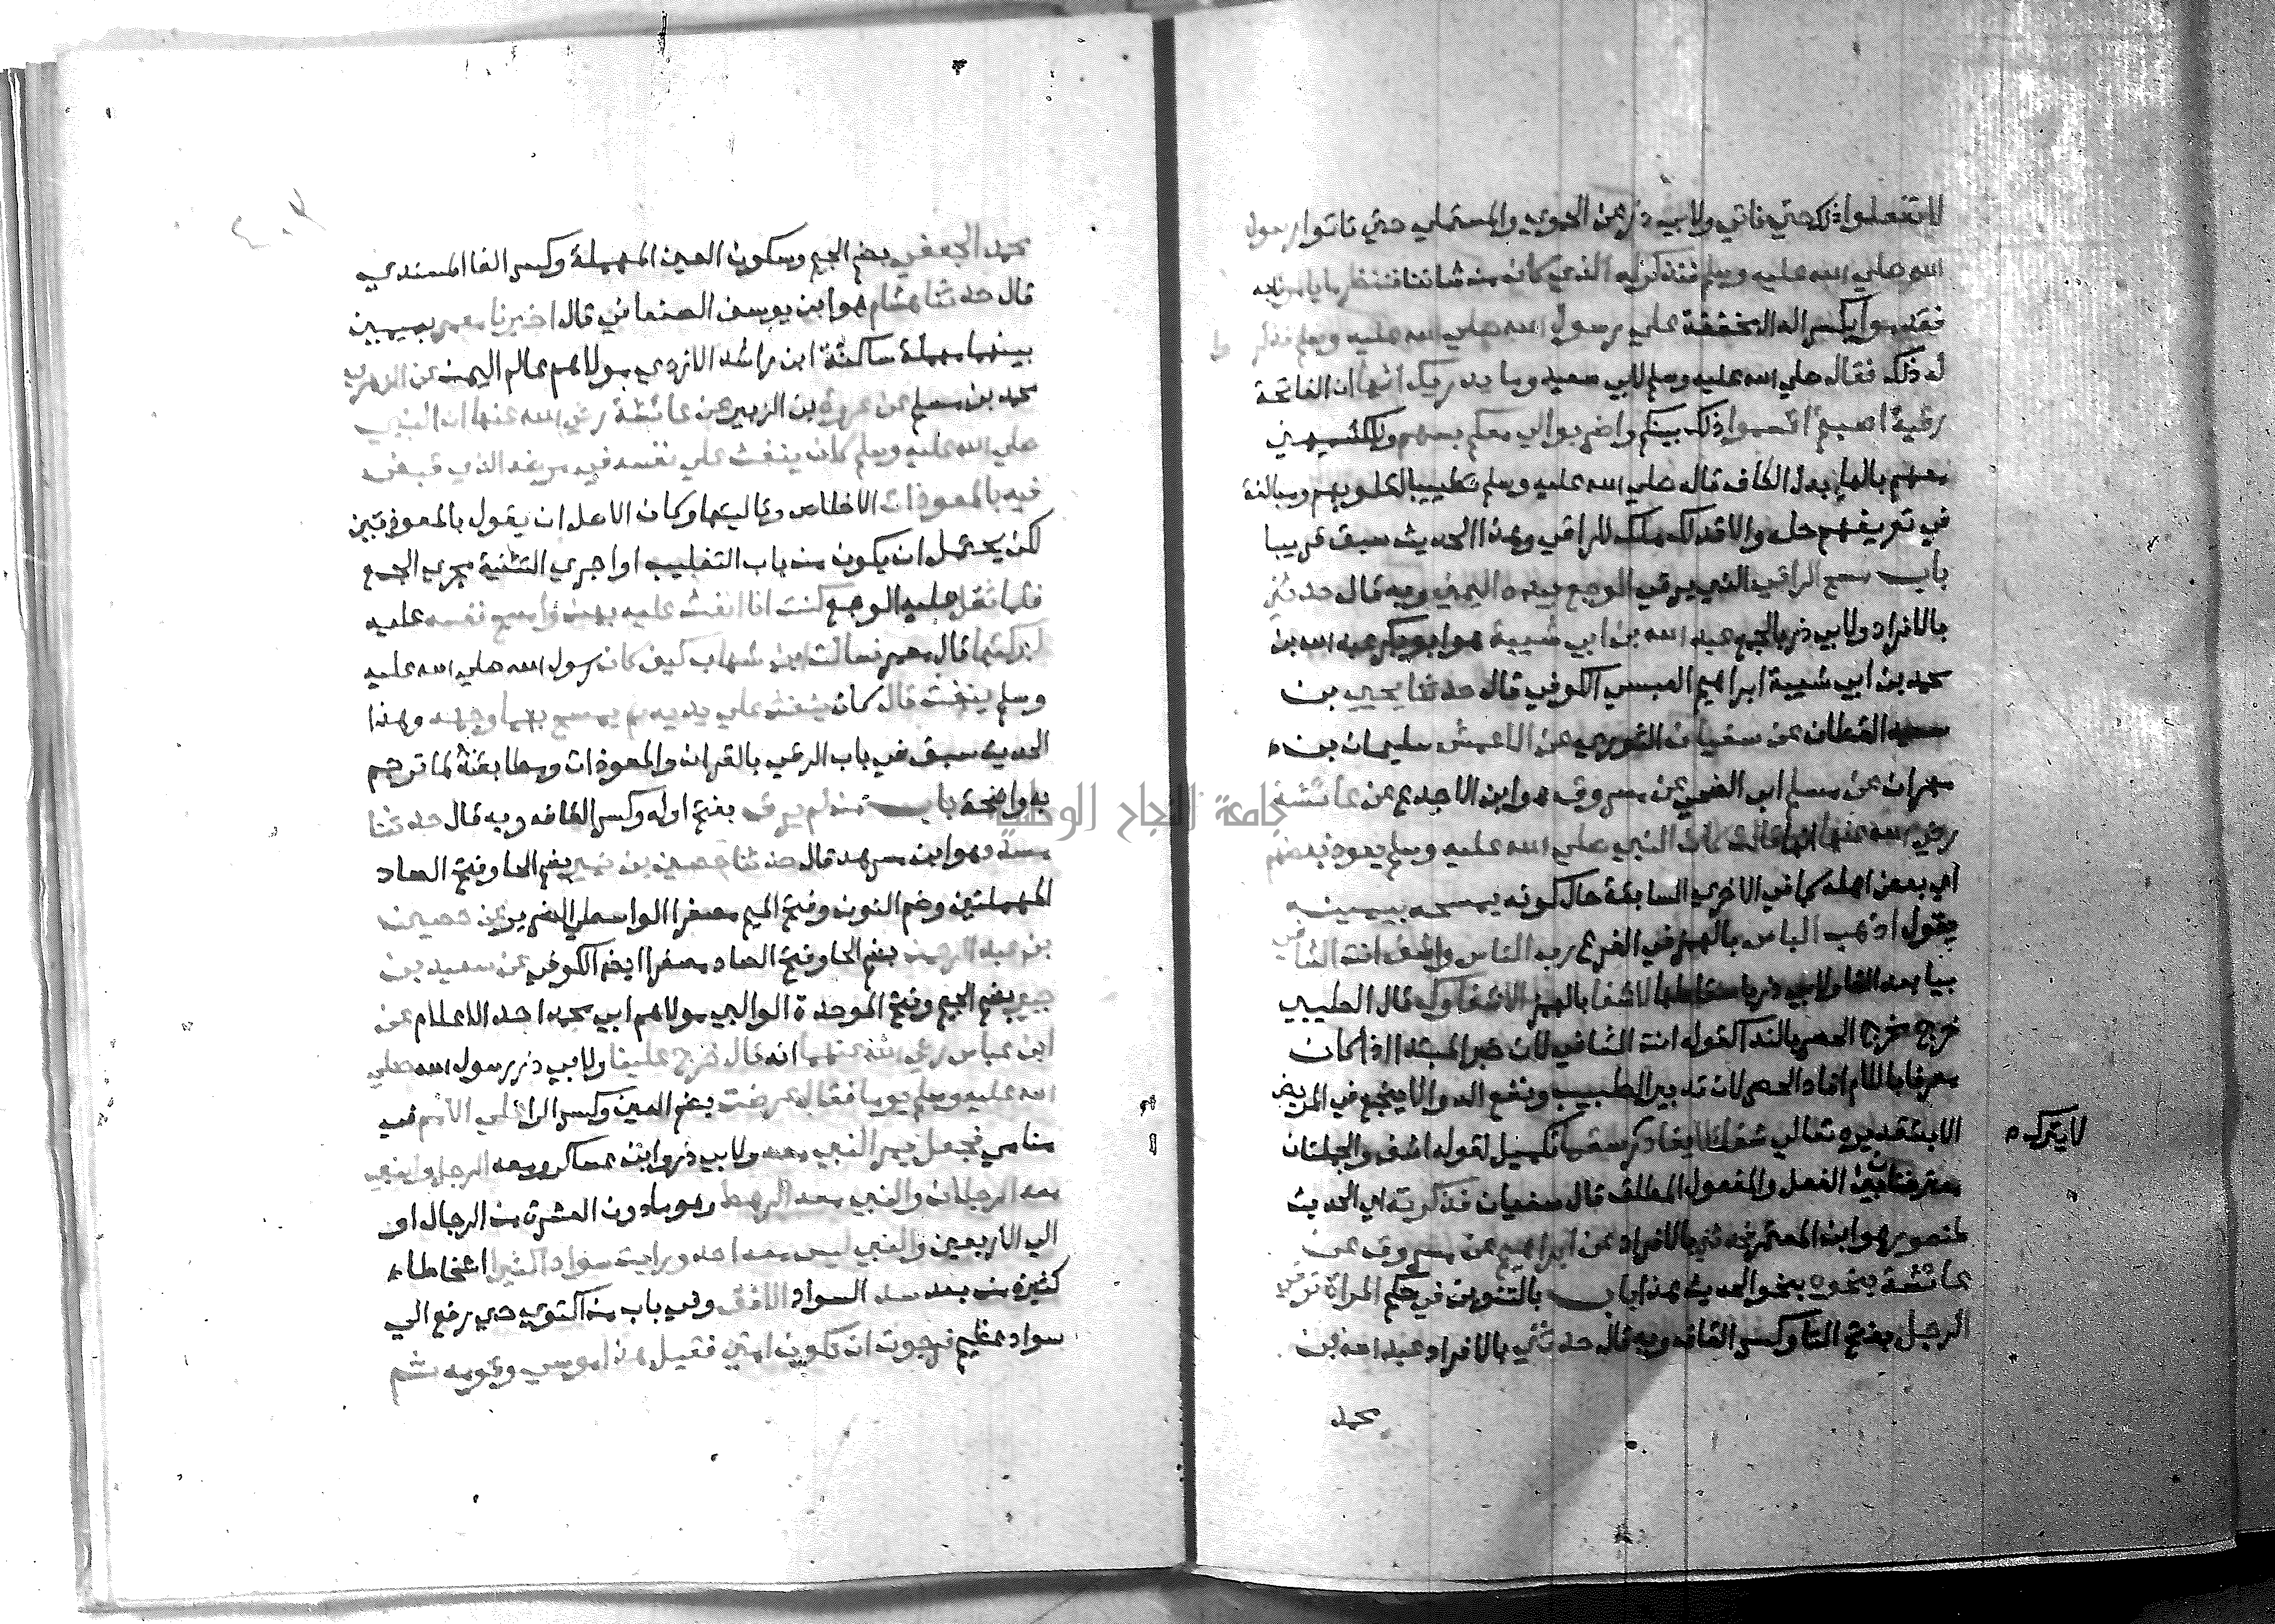 لا تفعلوا ذلك حتي ناتي ولابي ذر عن الحموي والمستملي حتي تاتوا رسول
الله صلي الله عليه وسلم فنذكر له الذي كان من شاننا فننظر ما يامرنا به
فقدموا بكسر الدال مخففة علي رسول الله صلي الله عليه وسلم فذكروا
له ذلك فقال صلي الله عليه وسلم لابي سعيد وما يدريك انها ان الفاتحة
رقية اصبتم اقسموا ذلك بينكم واضربوا لي معكم بسهم وللكشميهني
معهم بالهاء بدل الكاف قاله صلي الله عليه وسلم تطييبا لقلوبهم ومبالغة
في تعريفهم حله والا فذلك ملك للراقي وهذا الحديث سبق قريبا
باب مسح الراقي الذي يرقي الوجع بيده اليمني وبه قال حدثني
بالافراد ولابي ذر بالجمع عبد الله بن ابي شيبة هو ابو بكر عبد الله بن
محمد بن ابي شيبة ابراهيم العبسي الكوفي قال حدثنا يحيي بن
سعيد القطان عن سفيان الثوري عن الاعمش سليمان بن
مهران عن مسلم ابي الضحي عن مسروق هو ابن الاجدع عن عائشة
رضي الله عنها انها قالت كان النبي صلي الله عليه وسلم يعوذ بعضهم
اي بعض اهله كما في الاخري السابقة حال كونه يمسحه بيمينه
يقول اذهب الباس بالهمز في الفرع رب الناس واشف انت الشافي
بيا بعد الفا ولابي ذر باسقاطها لا شفا بالهمز الا شفاوك قال الطيبي
خرج مخرج الحصر بالندا لقوله انت الشافي لان خبر المبتدا اذا كان
معرفا باللام افاد الحصر لان تدبير الطبيب ونفع الدوا لا ينجع في المريض
الا بتقديره تعالي شفا لا يغادر سقما تكميل لقوله اشف والجملتان
لا يترك
معترضتان بين الفعل والمفعول المطلق قال سفيان فذكرته اي الحديث
لمنصور هو ابن المعتمر فحدثني بالافراد عن ابراهيم عن مسروق عن
عائشة بنحوه بنحو الحديث هذا باب بالتنوين في حكم المراة ترقي
الرجل بفتح التا وكسر القاف وبه قال حدثني بالافراد عبد الله بن
محمد
محمد الجعفي بضم الجيم وسكون العين المهملة وكسر الفا المسندي
قال حدثنا هشام هو ابن يوسف الصنعاني قال اخبرنا معمر بميمين
بينهما مهملة ساكنة ابن راشد الازدي مولاهم عالم اليمن عن الزهري
محمد بن مسلم عن عروة بن الزبير عن عائشة رضي الله عنها ان النبي
صلي الله عليه وسلم كان ينفث علي نفسه في مرضه الذي قبض
فيه بالمعوذات الاخلاص وتاليتيها وكان الاصل ان يقول بالمعوذتين
لكن يحتمل ان يكون من باب التغليب او اجري التثنية مجري الجمع
فلما ثقل عليه الوجع كنت انا انفث عليه بهن وامسح نفسه عليه
لبركتها قال معمر فسالت ابن شهاب كيف كان رسول الله صلي الله عليه
وسلم ينفث قال كان ينفث علي يديه ثم يمسح بهما وجهه وهذا
الحديث سبق في باب الرقي بالقران والمعوذات ومطابقته لما ترجم
به واضحة باب من لم يرق بفتح اوله وكسر القاف وبه قال حدثنا
مسدد هو ابن مسرهد قال حدثنا حصين بن نمير بضم الحا وفتح الصاد
المهملتين وضم النون وفتح الميم مصغرا الواسطي الضرير عن حصين
بن عبد الرحمن بضم الحا وفتح الصاد مصغرا ايضا الكوفي عن سعيد بن
جبير بضم الجيم وفتح الموحدة الوالبي مولاهم ابي محمد احد الاعلام عن
ابن عباس رضي الله عنهما انه قال خرج علينا ولابي ذر رسول الله صلي
الله عليه وسلم يوما فقال عرضت بضم العين وكسر الرا علي الامم في
منامي فجعل يمر النبي معه ولابي ذر وابن عساكر ومعه الرجل والنبي
معه الرجلان والنبي معه الرهط وهو ما دون العشرة من الرجال او
الي الاربعين والنبي ليس معه احد ورايت سوادا كثيرا اشخاصا
كثيرة من بعد سد السواد الافق وفي باب من اكتوي حتي رفع الي
سواد عظيم فرجوت ان تكون امتي فقيل هذا موسي وقومه ثم
جامعة النجاح الوطنية